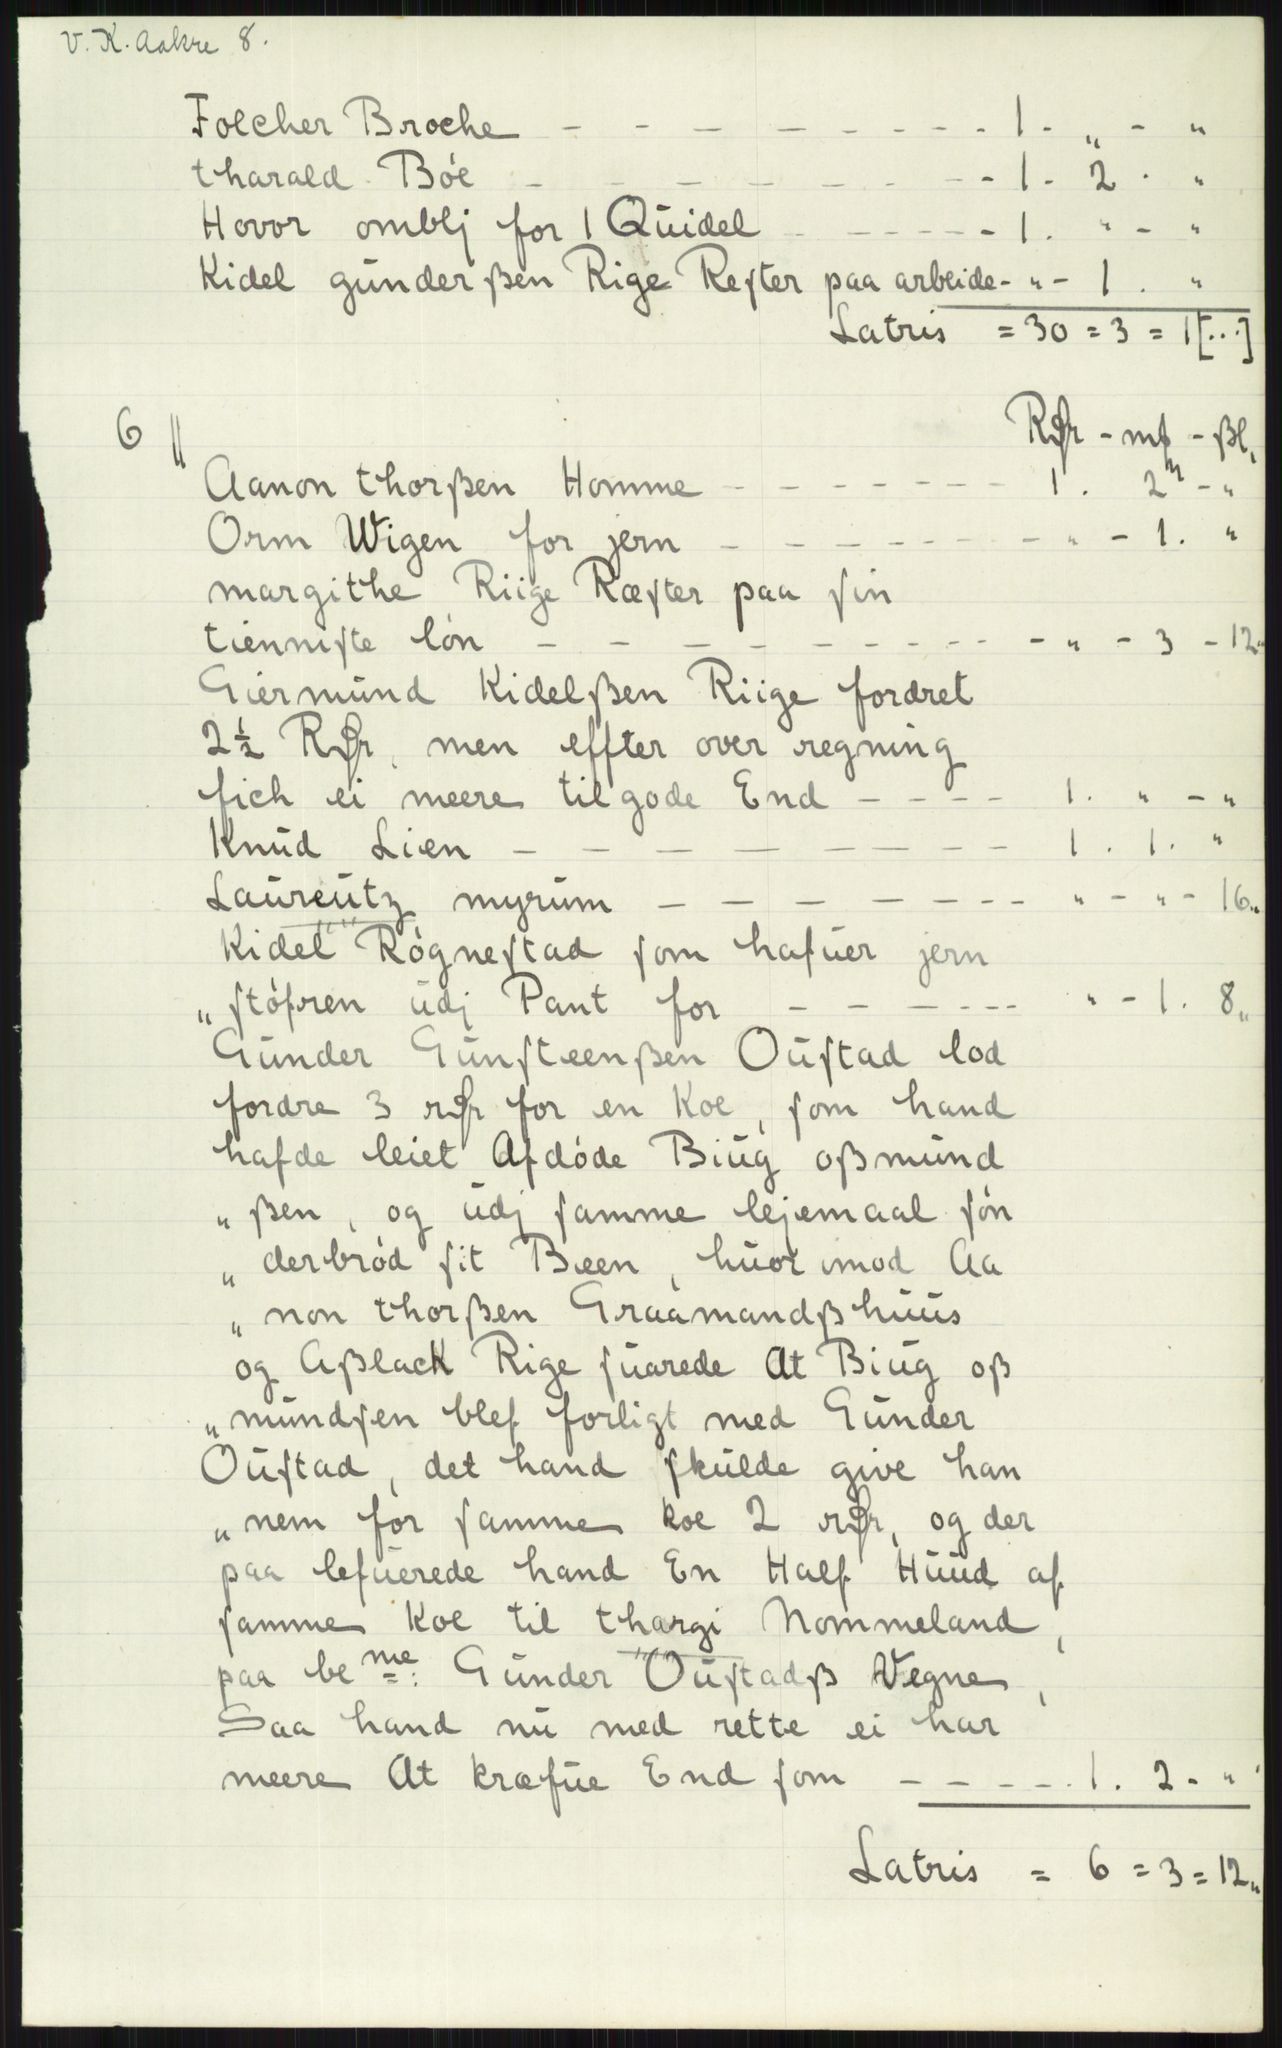 V. K. Aakre 8.
Folcher Broche - - - - - - - - - 1 - „ - „
tharald Bóe - - - - - - - - 1 - 2 . „
Hovor omblj for 1 Qūidel - - - - - 1 . „ - „
Kidel gūnderßen Rige Reſter paa arbeide - „ - 1 . „
Latris = 30 = 3 = 1 [...]
6 || Rdr - mk - ßl,
Aanon thorßen Homme - - - - - - - 1 . 2 - „
Orm Wigen for jern - - - - - - - „ - 1. „
margithe Riige Ræſter paa ſin
tienniſte lón - - - - - - - - - „ - 3 - 12„
Giermūnd Kidelßen Riige fordret
2½ Rdr, men effter over regning
fich ei meere tilgode End - - - - 1. „ - „
Knūd Lien - - - - - - - - 1 . 1. „
Laūreūtz myrūm - - - - - - - - „ - „ - 16„
Kidel Rógneſtad ſom hafūer jern
„ ſtófren ūdj Pant for - - - - - - „ - 1. 8„
Gūnder Gūnſteenßen Oūſtad lod
fordre 3 rdr for en Koe, ſom hand
hafde leiet Afdóde Biūg oßmūnd
„ ßen, og ūdj ſamme lejemaal ſón
„ derbród ſit Been, hūor imod Aa
„ non thorßen Graamandßhūūs
og Aßlack Rige ſūarede At Biūg oß
„ mūndſen blef forligt med Gūnder
Oūſtad, det hand ſkūlde give han
„ nem for ſamme koe 2 rdr, og der
paa lefūerede hand En Half Hūūd af
ſamme Koe til thargi Nommeland,
paa beme: Gūnder Oūſtadß Vegne,
Saa hand nū med rette ei har
meere At kræfūe End ſom - - - - - 1. 2 - „
Latris = 6 = 3 = 12„